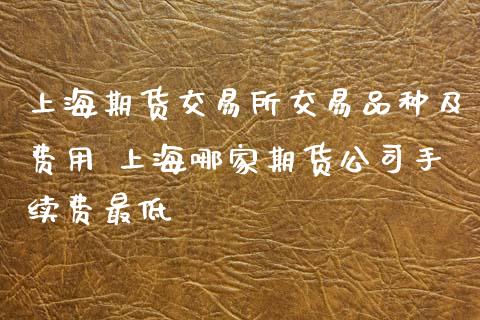 上海期货交易所交易品种及
费用 上海哪家期货公司手
续费最低